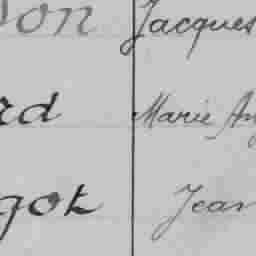 son Jacques
rd Marie Ang
got Jean